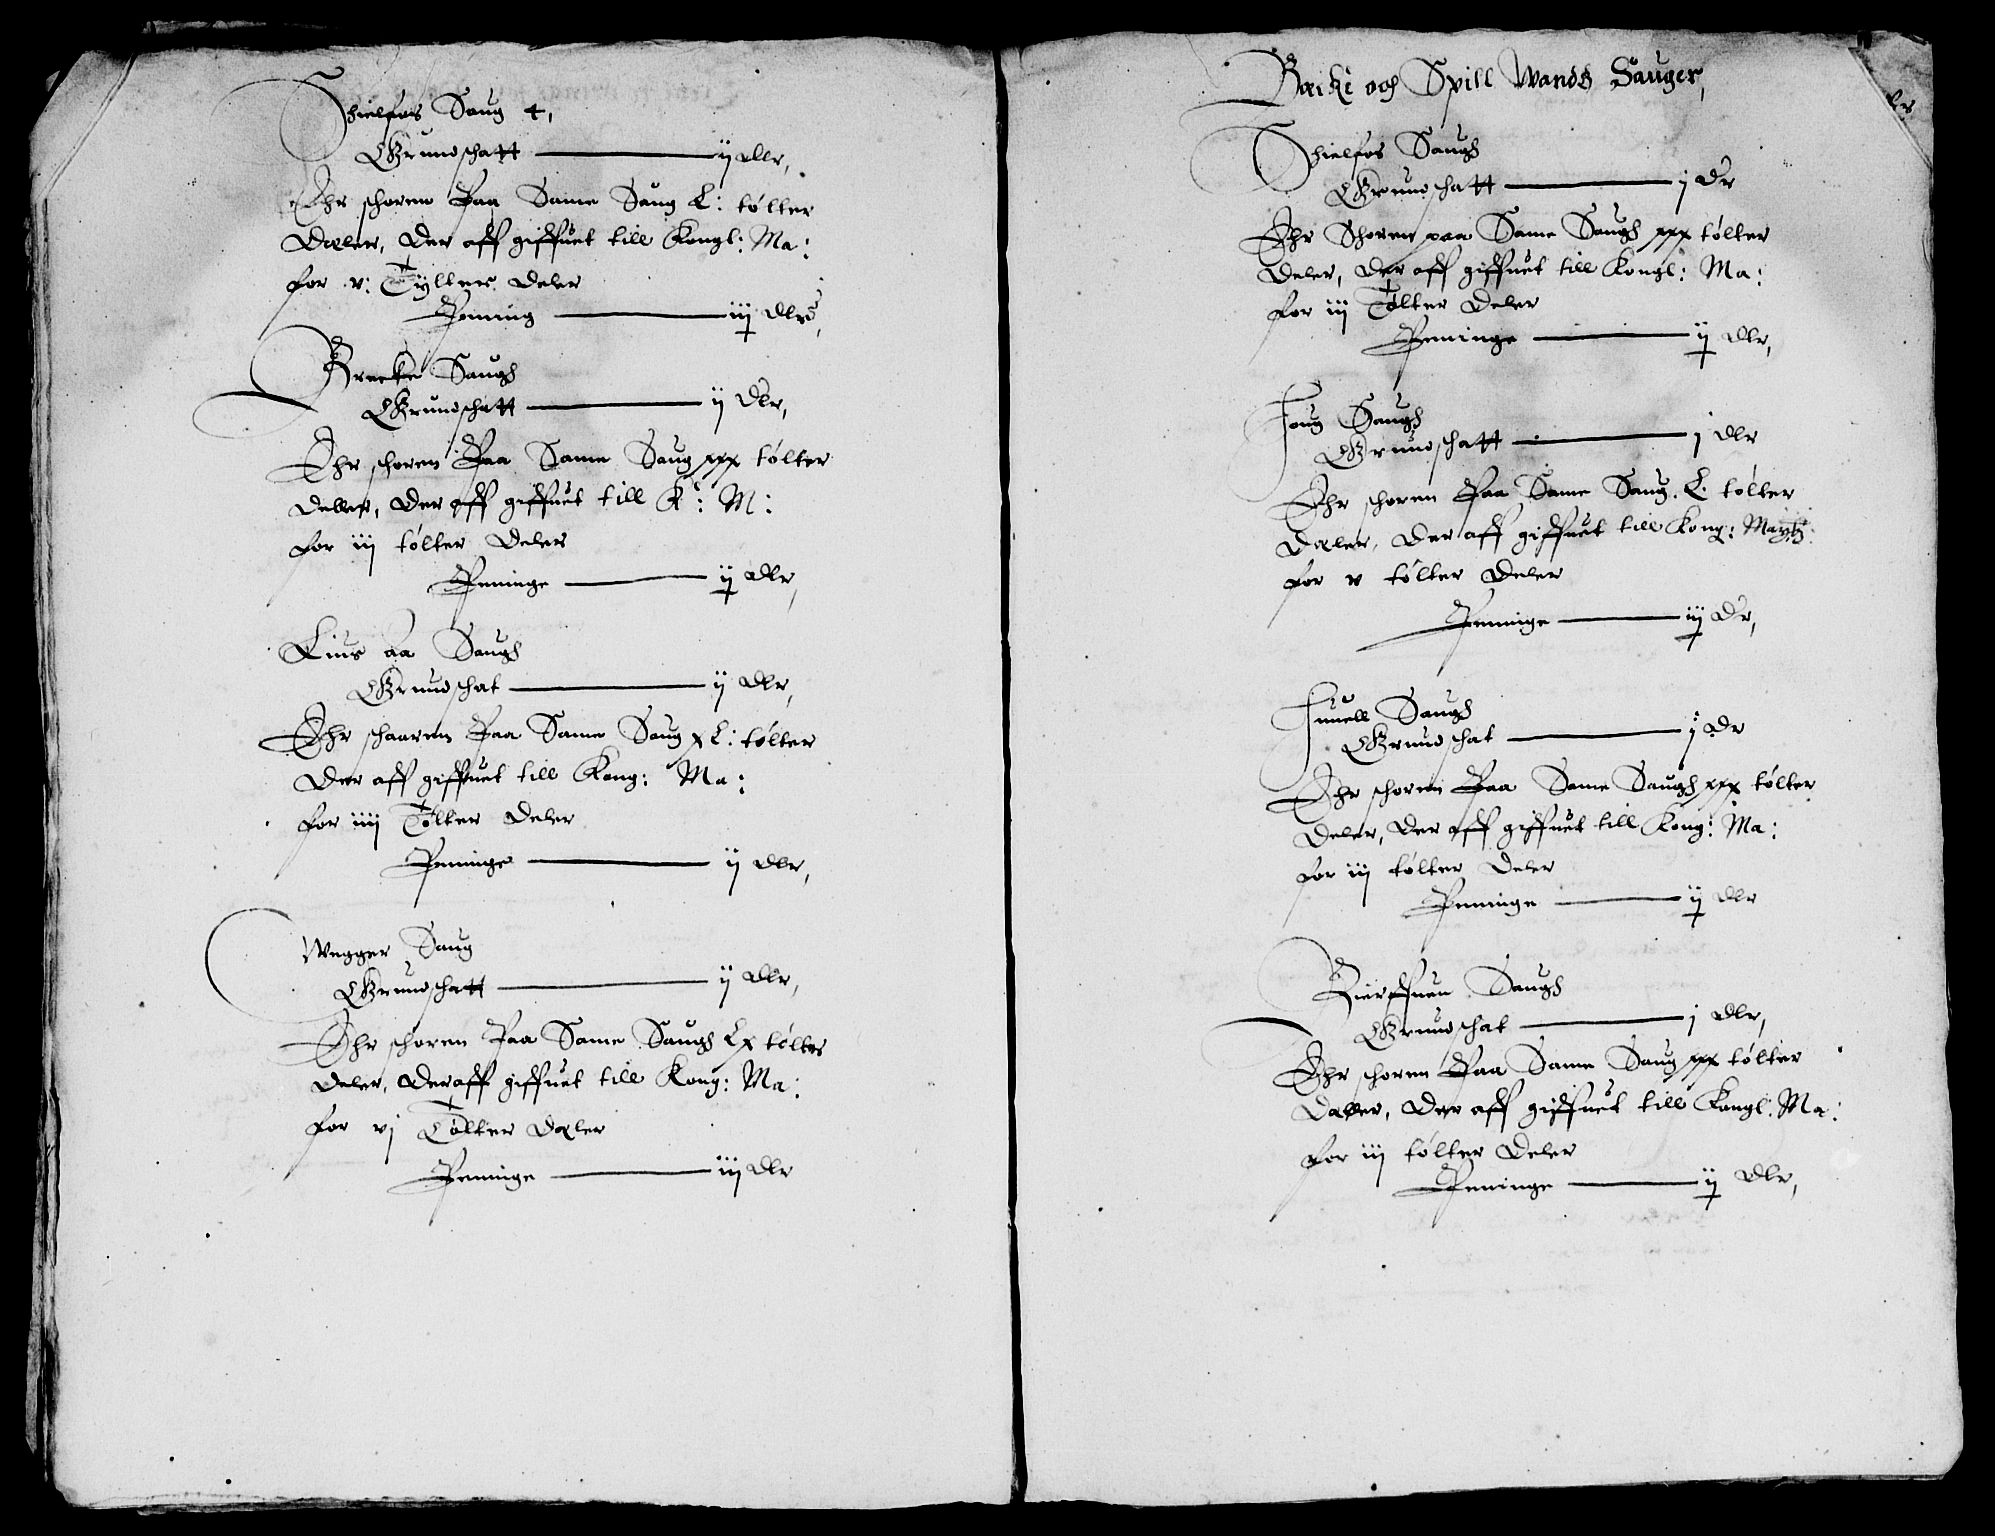 Thielfos Saug 4,
Grundschatt ij dlr,
Ehr schoren Paa Same Saug L: tølter
Dæler, der aff giffuet till Kongl: Ma:
for v: Tylter deler
Pening iij dlr,
Brecke Saugh
Grundschatt ij dlr,
Ehr schoren Paa Same Saug xxx tølter
deller, der aff giffuet till K: M:
for iij tølter deler
Peninge ij dlr,
Lius aa Saugh
Grundschat ij dlr,
Ehr schaaren Paa Same Saug xL: tølter
der aff giffuet till Kong: Ma:
for iiij Tølter deler
Peninge ij dlr,
Wegger Saug
Grundschatt ij dlr,
Ehr schoren Paa Same Saugh Lx tølter
deler, der aff giffuet till Kong: Ma:
for vj Tølter dæler
Peninge iij dlr
Becke och Spill Wands Sauger,
Thielfos Saugh
Grundschatt j dr
Ehr Schoren paa Same Saugh xxx tølter
deler, der aff giffuet till Kongl: Ma:
for iij Tølter deler
Peninge ij dlr,
Foug Saugh
Grundschatt j dlr
Ehr schoren Paa Same Saug L. tølter
Dæler, der aff giffuet till Kong: Maytz:
for v tølter deler
Peninge iij dr,
Saugh
Grundschat j dr
Ehr schoren Paa Same Saugh xxx tølter
deler, der aff giffuet till Kong: Ma:
for iij tølter deler
Peninge ij dlr
Saugh
Grundschat j dlr,
Ehr schoren Paa Same Saug xxx tølter
Dæller, der aff giffuet till Kongl: Ma:
for iij tølter deler
Peninge ij dlr,